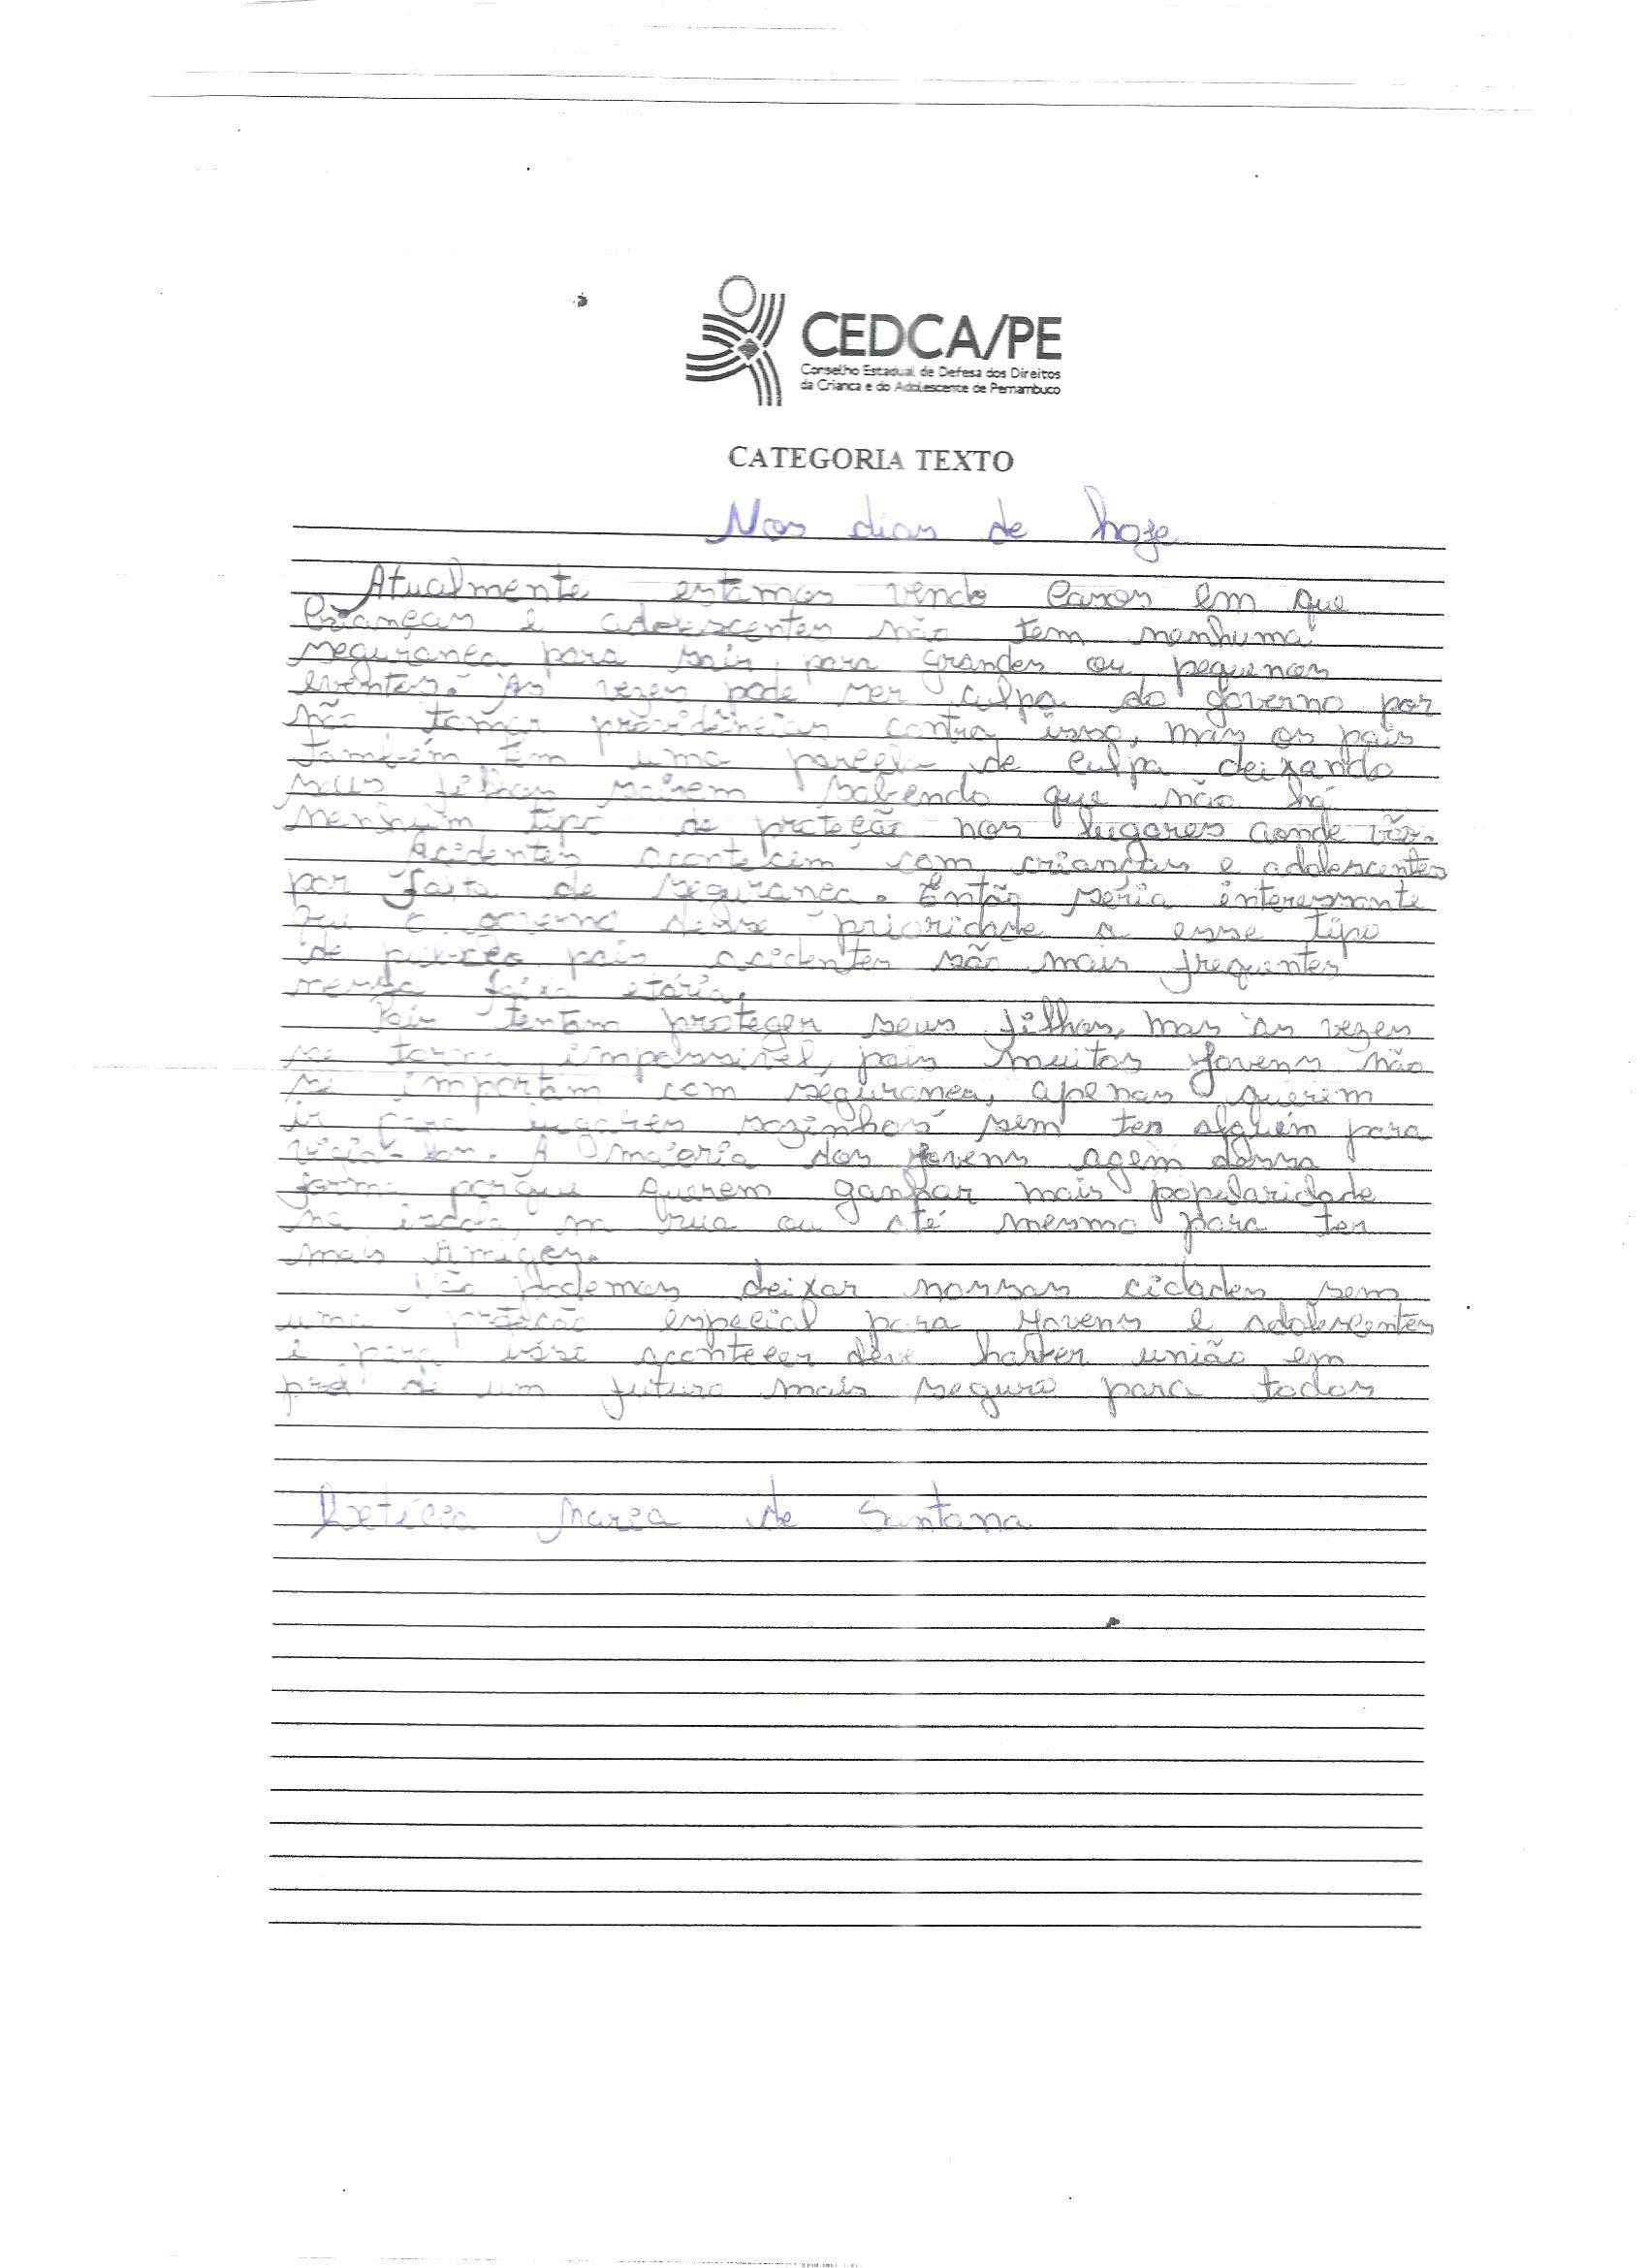 CEDCA/PE
Conselho Estadual de Defesa dos Direitos
da Criança e do Adolescente de Pernambuco
CATEGORIA TEXTO
Nos dias de hoje
Atualmente estamos vendo casos em que
crianças e adolescentes não tem nenhuma
segurança para sair para grandes ou pequenos
eventos. Às vezes pode ser culpa do governo por
não tomar providências contra isso, mas os pais
também tem uma parcela de culpa deixando
seus filhos saírem sabendo que não há
nenhum tipo de proteção nos lugares aonde vão.
Acidentes acontecem com crianças e adolescentes
por falta de segurança. Então seria interessante
que o governo desse prioridade a esse tipo
de proteção pois acidentes são mais frequentes
nessa faixa etária.
Pais tentam proteger seus filhos, mas às vezes
se torna impossível, pois muitos jovens não
se importam com segurança, apenas querem
ir para lugares sozinhos sem ter alguém para
vigiá-los. A maioria dos jovens agem dessa
forma porque querem ganhar mais popularidade
na escola, na rua ou até mesmo para ter
mais amigos.
Não podemos deixar nossas cidades sem
uma proteção especial para jovens e adolescentes
e para isso acontecer deve haver união em
prol de um futuro mais seguro para todos
Letícia Maria de Santana